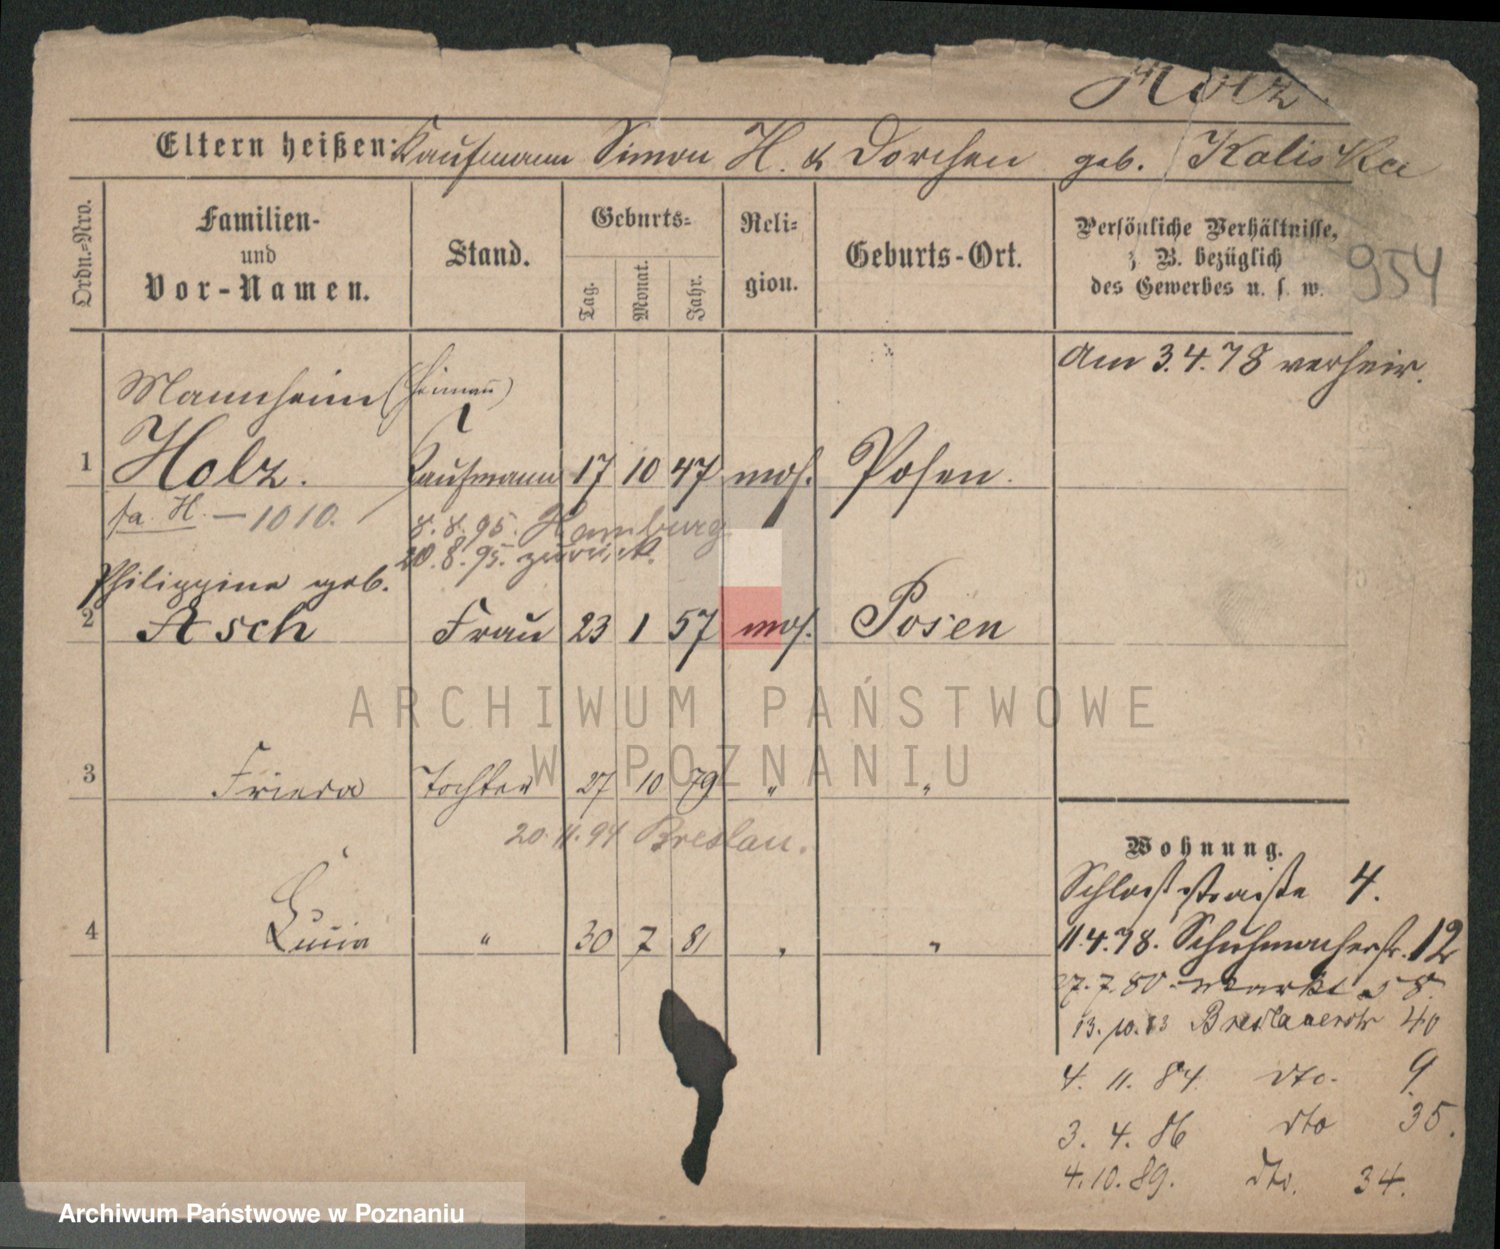 Holz.
Eltern heißen: Kaufmann Simon H. & Dorchen geb. Kaliska
Ordn.=Nro.
Familien-
und
Vor-Namen.
Stand.
Geburts=
Tag.
Monat.
Jahr.
Reli=
gion.
Geburts-Ort.
Persönliche Verhältnisse,
z B. bezüglich
des Gewerbes u. s. w.
954
Am 3.4.78 verheir.
Mannheim (Heimann)
1 Holz. Kaufmann 17 10 47 mos. Posen.
fa. H. — 1010.
8.8.95. Hamburg.
20.8.95. zurück.
Philippine geb.
2 Asch Frau 23 1 57 mos. Posen
3 Frieda Tochter 27 10 79 " "
20.11.94 Breslau.
4 Lucia " 30 7 81 " "
Wohnung.
Schloßstraße 4.
11.4.78. Schuhmacherstr. 12
27.7.80 Markt 58.
13.10.83 Breslauerstr 40
4. 11. 84. dto. 9.
3. 4. 86 dto 35.
4.10.89. dto. 34.
ARCHIWUM PAŃSTWOWE
W POZNANIU
Archiwum Państwowe w Poznaniu